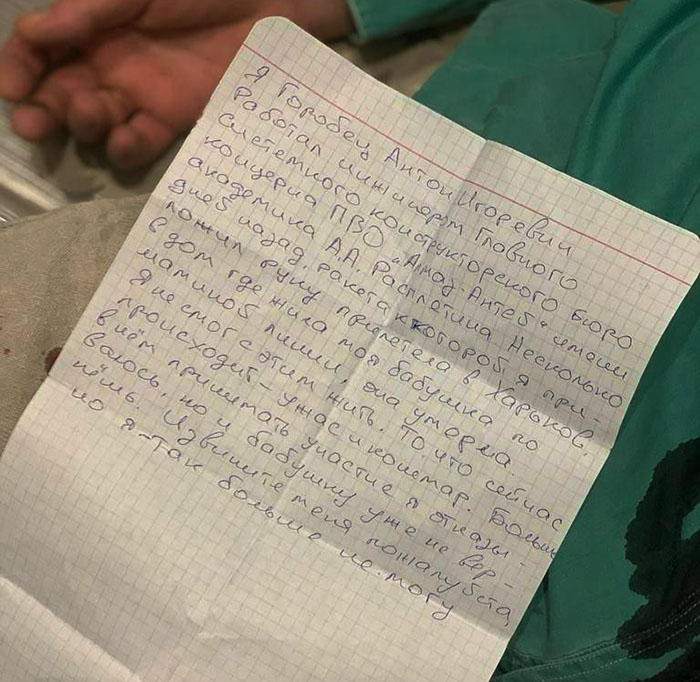 Я Горобец Антон Игоревич
Работал инжинером Главного
системного конструкторского бюро
концерна ПВО "Алмаз-Антей" имени
академика А.А. Расплетина. Несколько
дней назад, ракета к которой я при-
ложил руку прилетела в Харьков.
в дом где жила моя бабушка по
маминой линии, она умерла.
Я не смог с этим жить. То что сейчас
происходит - ужас и кошмар. Больше
в нём принимать участие я отказы-
ваюсь, но и бабушку уже не вер-
нёшь. Извините меня пожалуйста,
но я так больше не могу